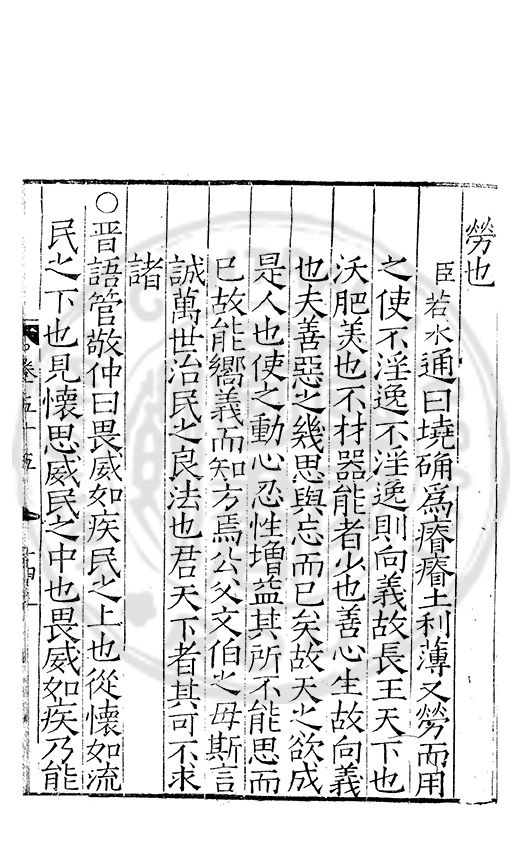 勞也
臣若水通曰墝确爲瘠瘠土利薄又勞而用
之使不淫逸不淫逸則向義故長王天下也
沃肥美也不材器能者少也善心生故向義
也夫善惡之幾思與忘而已矣故天之欲成
是人也使之動心忍性增益其所不能思而
已故能嚮義而知方焉公父文伯之母斯言
誠萬世治民之良法也君天下者其可不求
諸
○晉語管敬仲曰畏威如疾民之上也從懷如流
民之下也見懷思威民之中也畏威如疾乃能
卷五十五